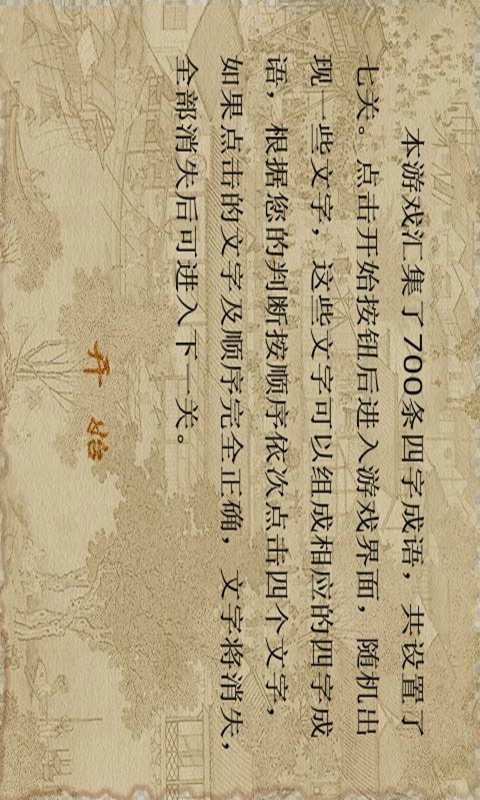 本游戏汇集了700条四字成语，共设置了
七关。点击开始按钮后进入游戏界面，随机出
现一些文字，这些文字可以组成相应的四字成
语，根据您的判断按顺序依次点击四个文字，
如果点击的文字及顺序完全正确，文字将消失，
全部消失后可进入下一关。
开始